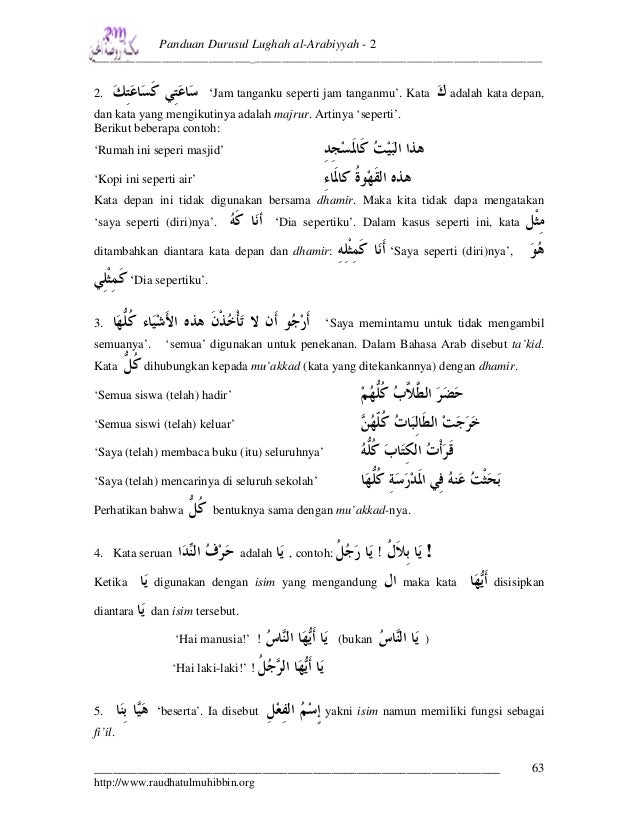 Panduan Durusul Lughah al-Arabiyyah - 2
2. سَاعَتِي كَسَاعَتِكَ ‘Jam tanganku seperti jam tanganmu’. Kata كَ adalah kata depan,
dan kata yang mengikutinya adalah majrur. Artinya ‘seperti’.
Berikut beberapa contoh:
‘Rumah ini seperi masjid’ هذا البَيْتُ كَالمَسْجِدِ
‘Kopi ini seperti air’ هذه القَهْوَةُ كالمَاءِ
Kata depan ini tidak digunakan bersama dhamir. Maka kita tidak dapa mengatakan
‘saya seperti (diri)nya’. أَنَا كَهُ ‘Dia sepertiku’. Dalam kasus seperti ini, kata مِثْل
ditambahkan diantara kata depan dan dhamir: أَنَا كَمِثْلِهِ ‘Saya seperti (diri)nya’, هُوَ
كَمِثْلِي ‘Dia sepertiku’.
3. أَرْجُو أَن لا تَأْخُذْنَ هذه الأَشْيَاء كُلُّهَا ‘Saya memintamu untuk tidak mengambil
semuanya’. ‘semua’ digunakan untuk penekanan. Dalam Bahasa Arab disebut ta’kid.
Kata كُلُّ dihubungkan kepada mu’akkad (kata yang ditekankannya) dengan dhamir.
‘Semua siswa (telah) hadir’ حَضَرَ الطُّلاَّبُ كُلُّهُمْ
‘Semua siswi (telah) keluar’ خَرَجَتْ الطَالِبَاتُ كُلُّهُنَّ
‘Saya (telah) membaca buku (itu) seluruhnya’ قَرَأْتُ الكِتَابَ كُلُّهُ
‘Saya (telah) mencarinya di seluruh sekolah’ بَحَثْتُ عَنهُ فِي المَدْرَسَةِ كُلُّهَا
Perhatikan bahwa كُلُّ bentuknya sama dengan mu’akkad-nya.
4. Kata seruan حَرْفُ النِّدَا adalah يَا , contoh: يَا رَجُلُ ! يَا بِلاَلُ !
Ketika يَا digunakan dengan isim yang mengandung ال maka kata أَيُّهَا disisipkan
diantara يَا dan isim tersebut.
‘Hai manusia!’ يَا أَيُّهَا النَّاسُ ! (bukan يَا النَّاسُ )
‘Hai laki-laki!’ يَا أَيُّهَا الرَّجُلُ !
5. هَيَّا بِنَا ‘beserta’. Ia disebut إِسْمُ الفِعْلِ yakni isim namun memiliki fungsi sebagai
fi’il.
63
http://www.raudhatulmuhibbin.org